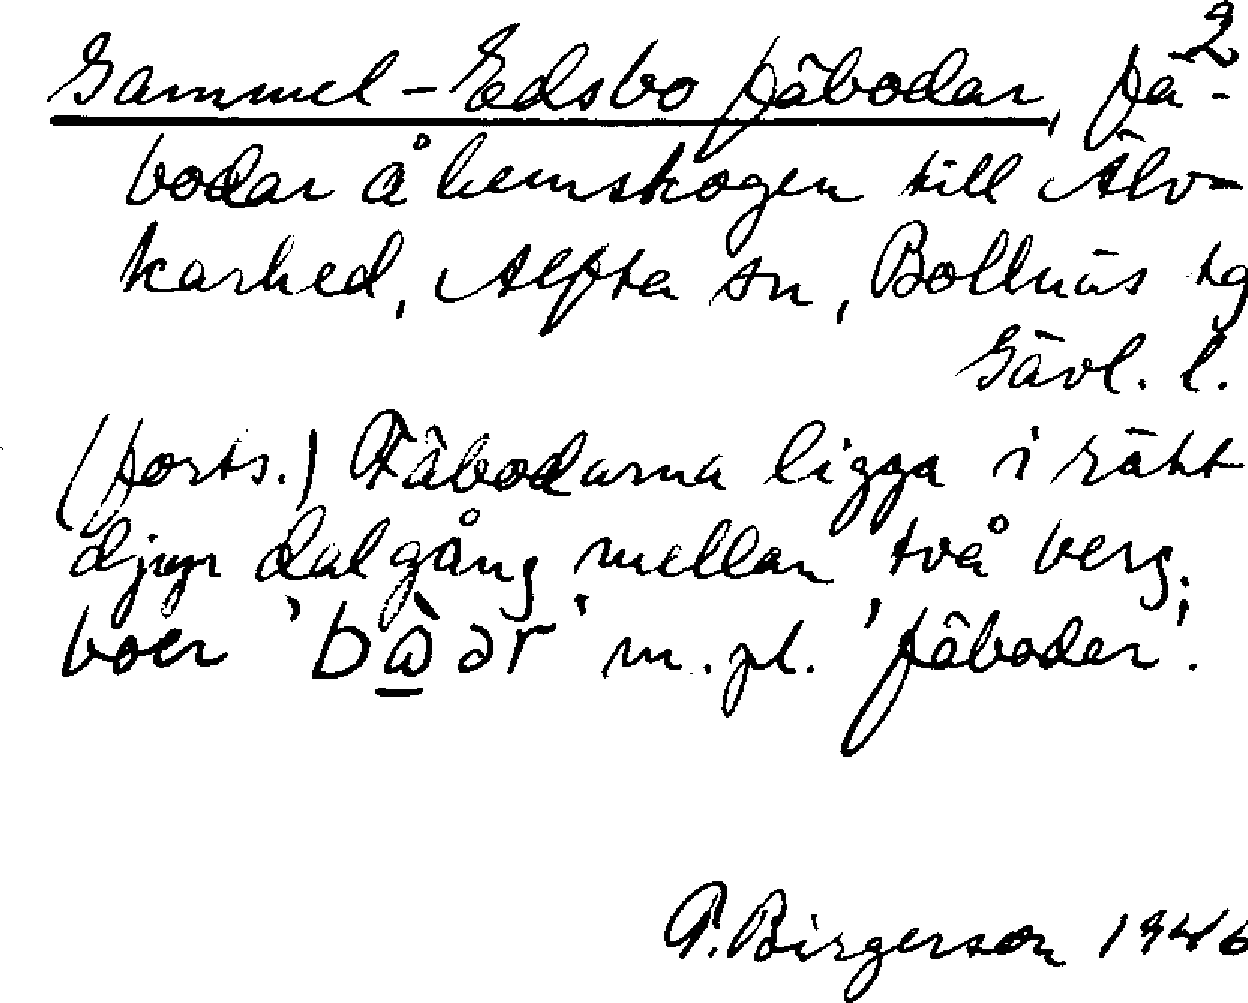 2
Gammel-Edsbo fäbodar, fä-
bodar å hemskogen till Älv-
karhed, Alfta sn, Bollnäs tg
Gävl. l.
(forts.) Fäbodarna ligga i rätt
djup dalgång mellan två berg.
boer 'bὼər' m.pl. 'fäboder'.
P. Birgerson 1946